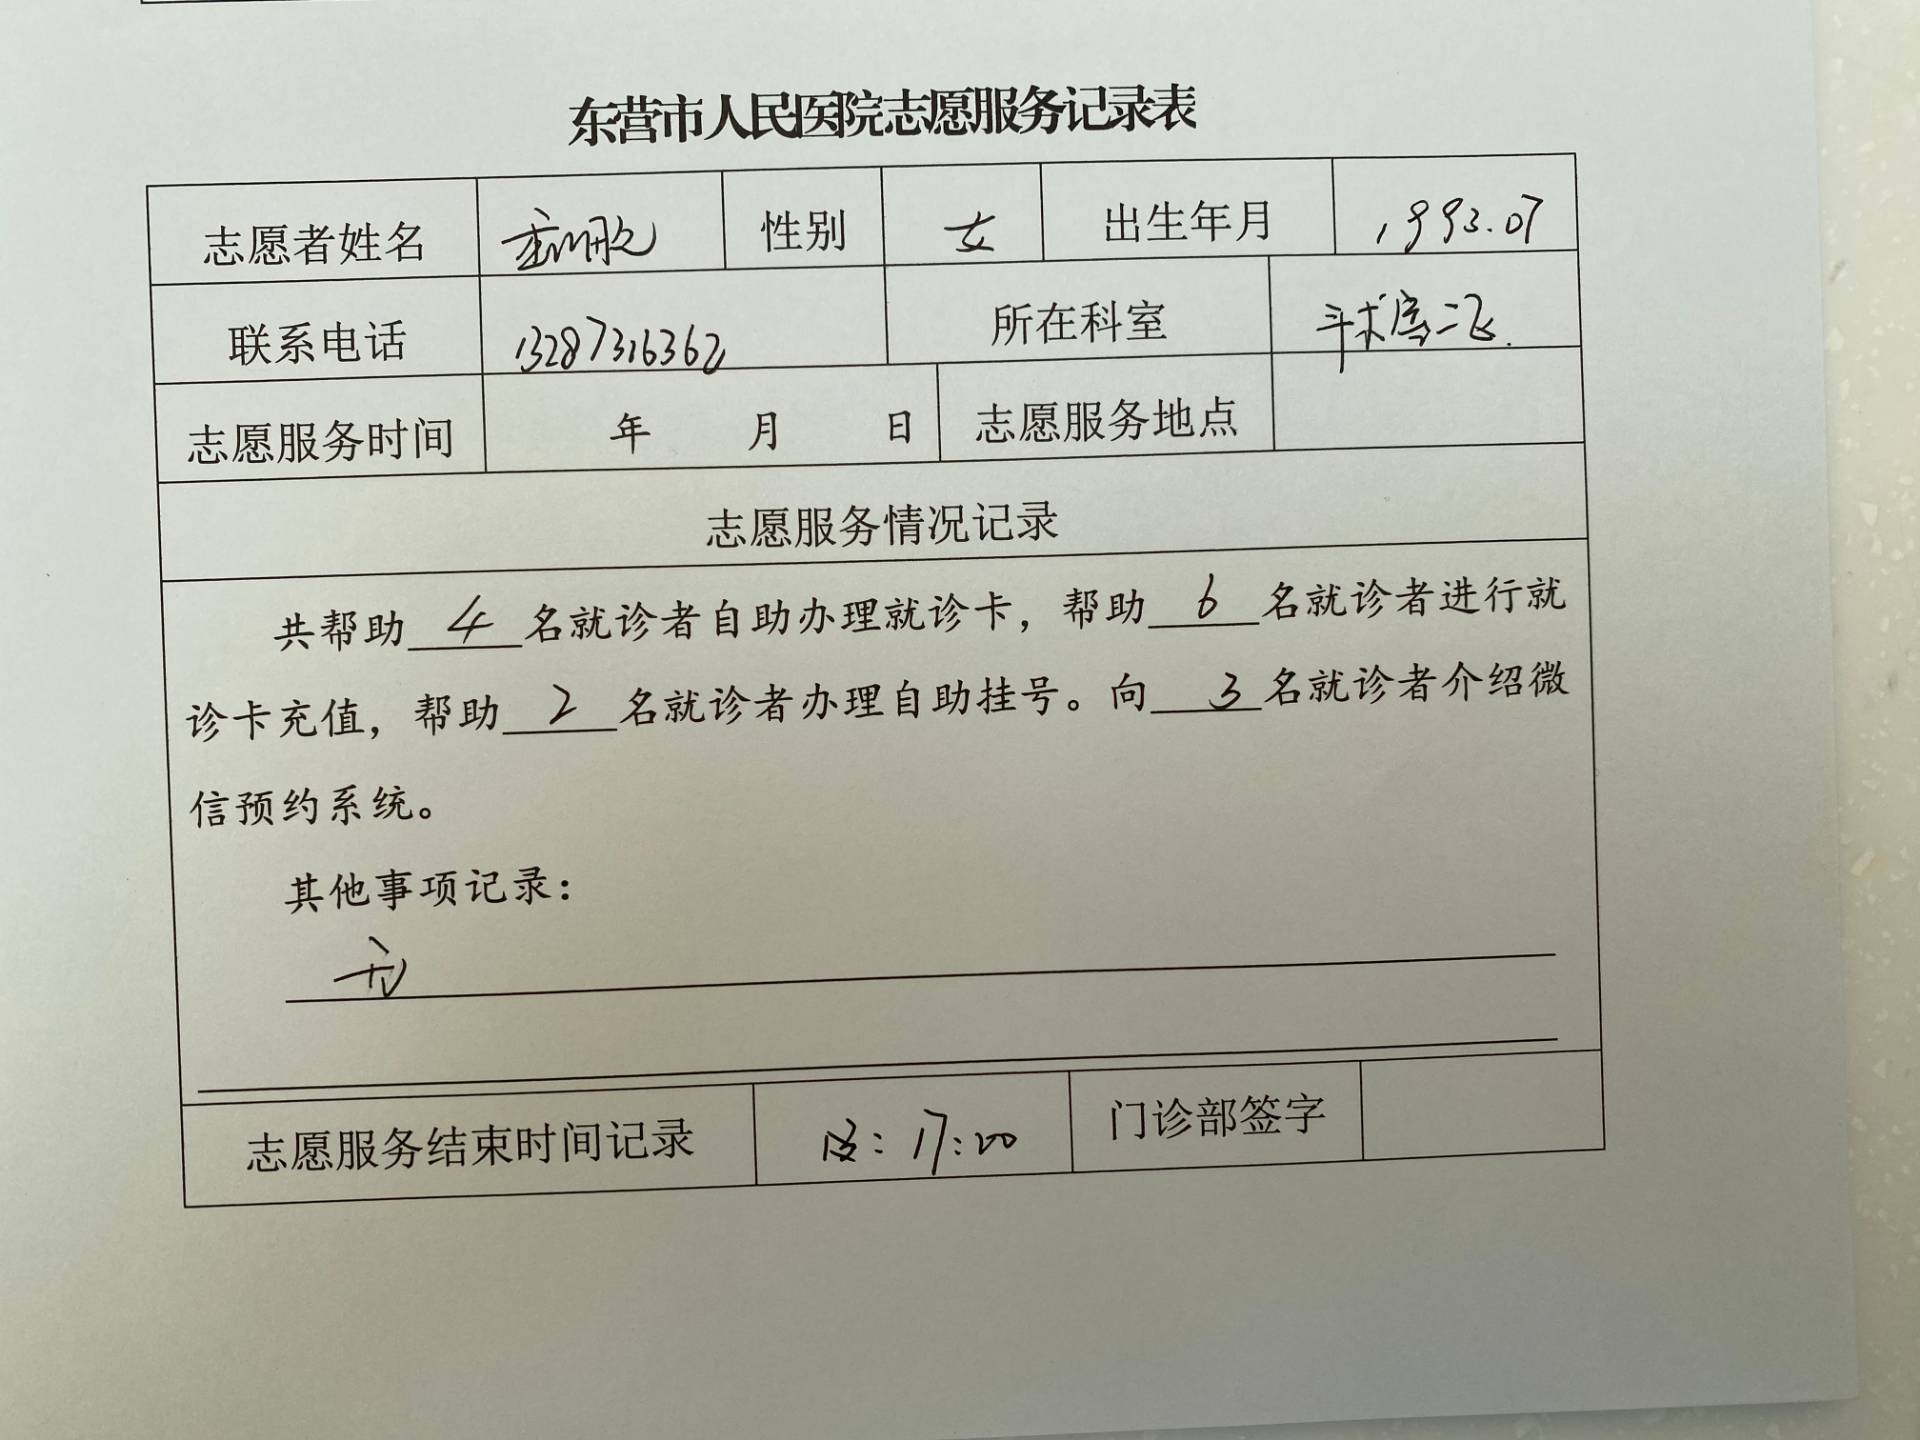 东营市人民医院志愿服务记录表
志愿者姓名 性别 女 出生年月 1993.07
联系电话 13287316362 所在科室 手术室二
志愿服务时间 年 月 日 志愿服务地点
志愿服务情况记录
共帮助 4 名就诊者自助办理就诊卡，帮助 6 名就诊者进行就
诊卡充值，帮助 2 名就诊者办理自助挂号。向 3 名就诊者介绍微
信预约系统。
其他事项记录：
无
志愿服务结束时间记录 17:00 门诊部签字